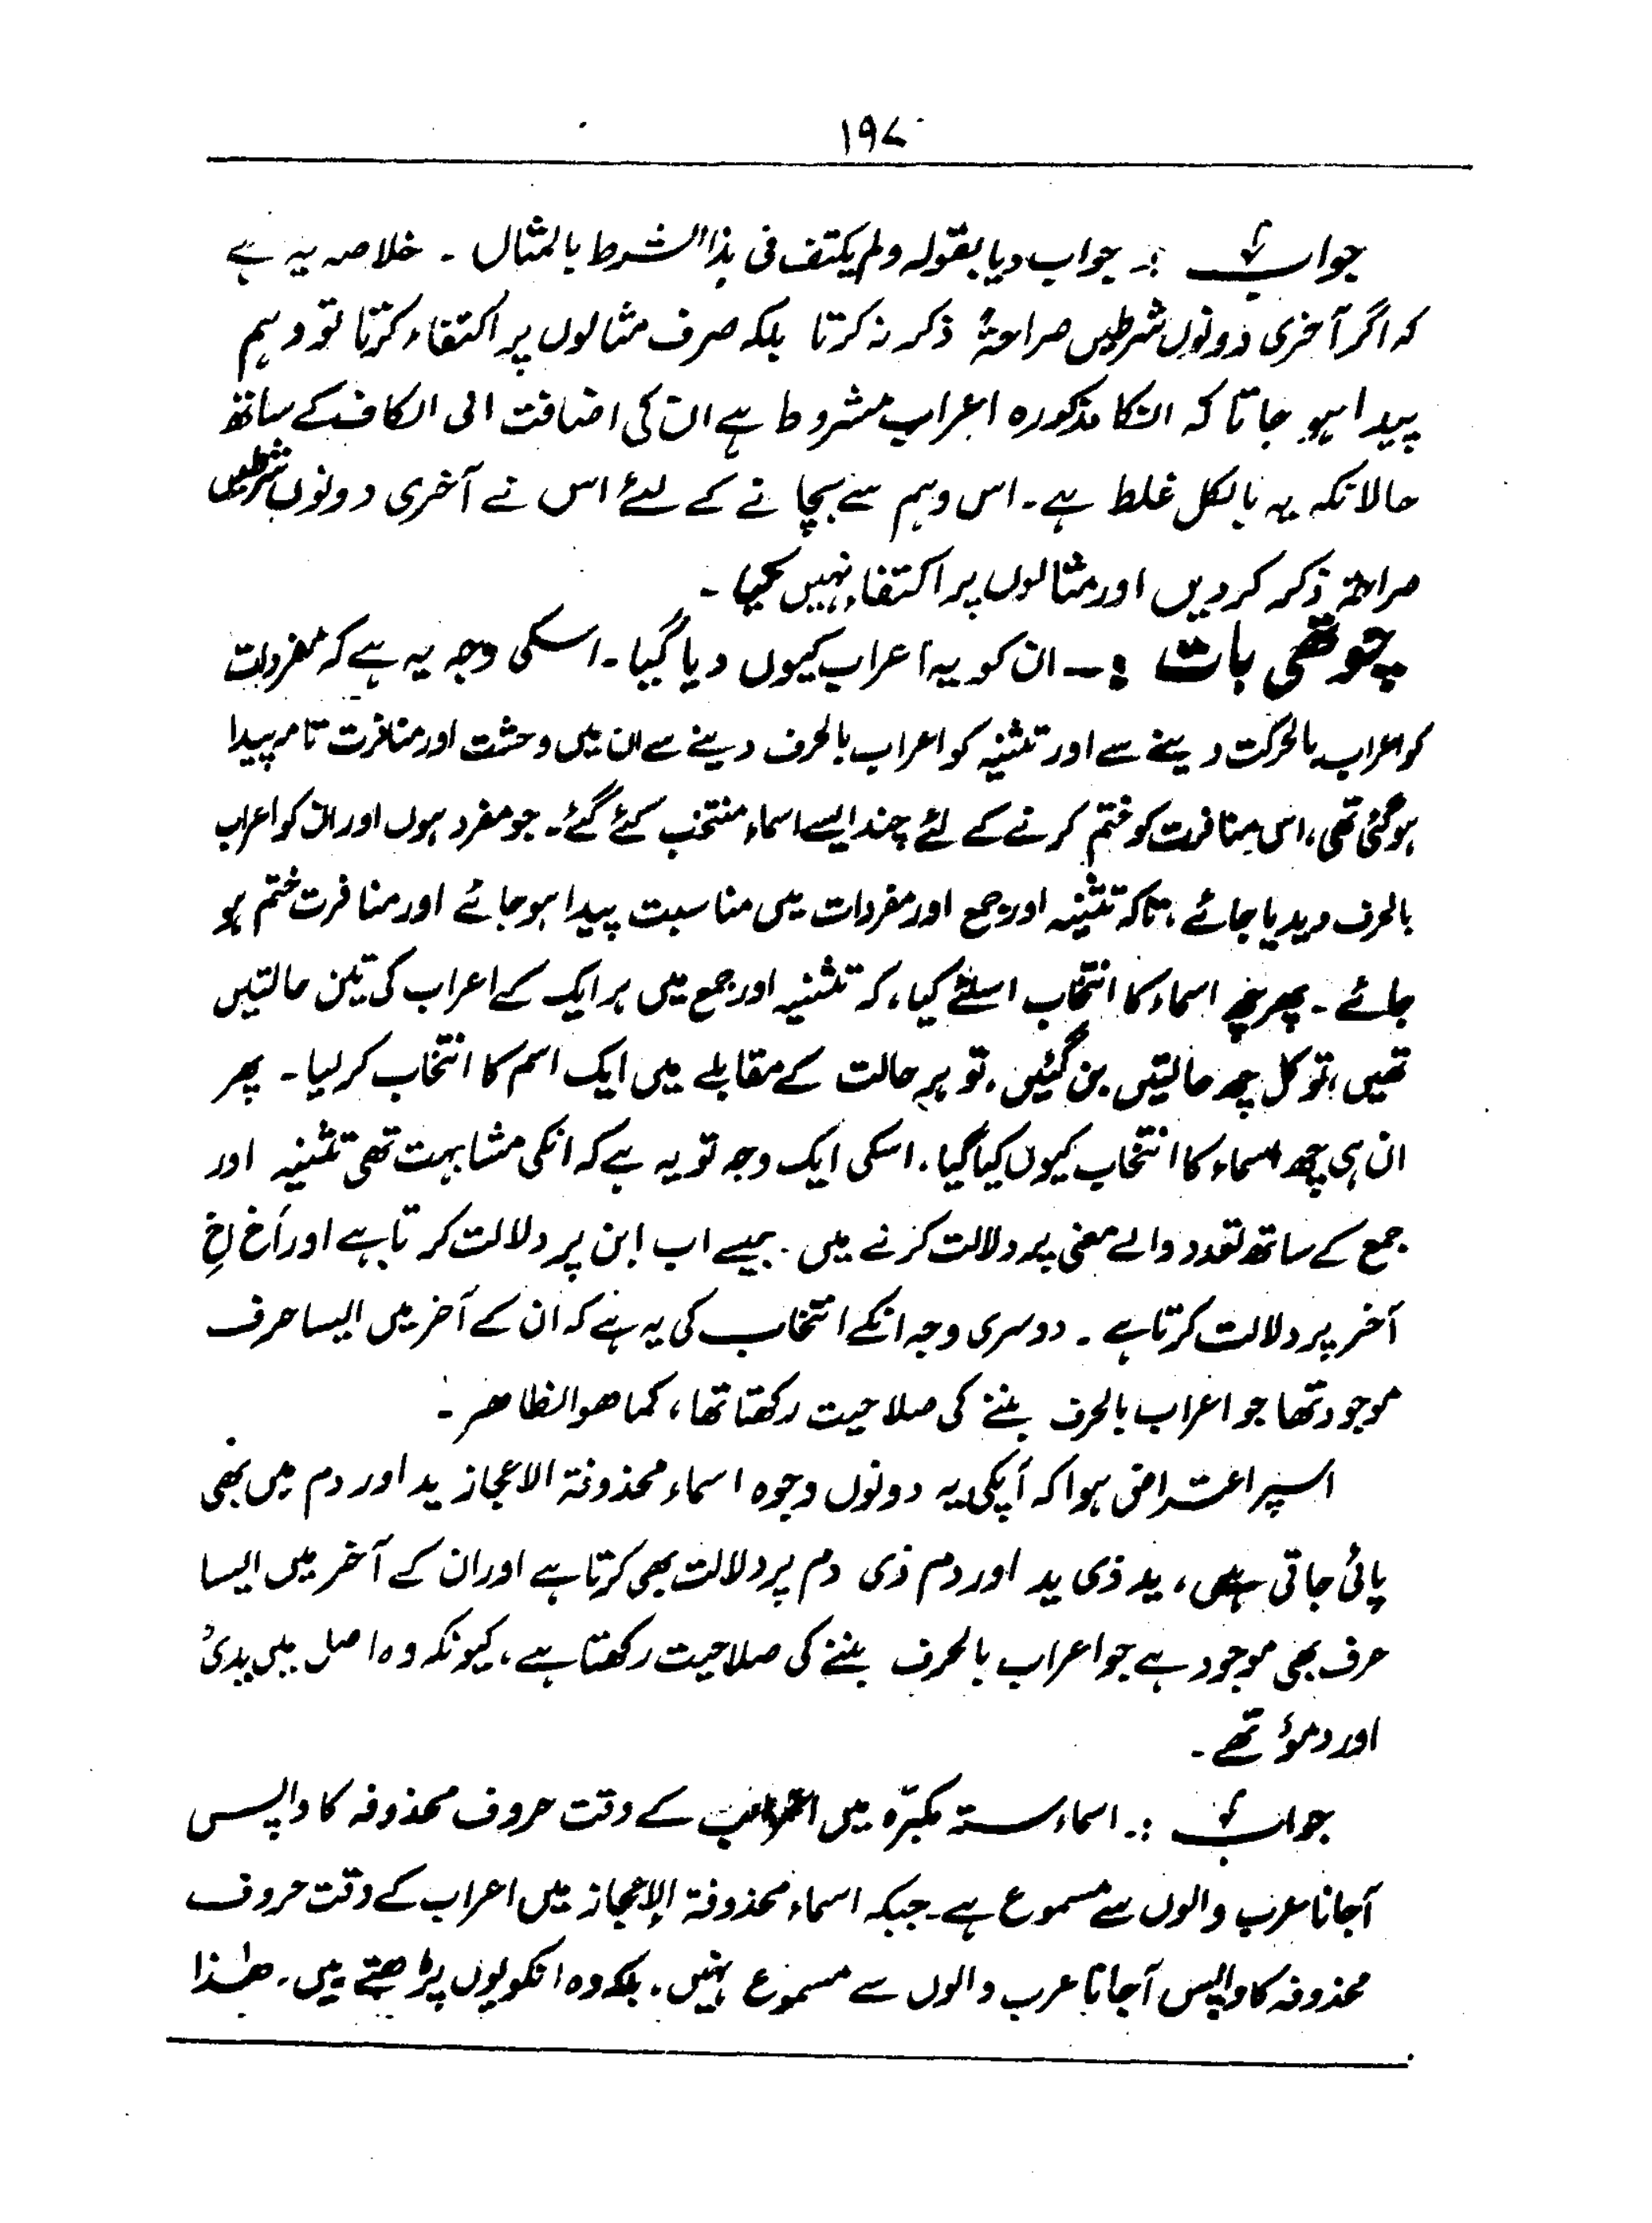 ۱۹۷
جواب :۔ جواب دیا بقولہ ولم یکتف فی ہذا الشرط بالمثال ۔ خلاصہ یہ ہے
کہ اگر آخری دونوں شرطیں صراحۃً ذکر نہ کرتا بلکہ صرف مثالوں پر اکتفاء کرتا تو وہم
پیدا ہو جاتا کہ انکا مذکورہ اعراب مشروط ہے ان کی اضافت الی الکاف کے ساتھ
حالانکہ یہ بالکل غلط ہے۔ اس وہم سے بچانے کے لئے اس نے آخری دونوں شرطیں
صراحۃً ذکر کردیں اور مثالوں پر اکتفاء نہیں کیا ۔
چوتھی بات :۔ ان کو یہ اعراب کیوں دیا گیا ۔ اسکی وجہ یہ ہے کہ مفردات
کو اعراب بالحرکت دینے سے اور تثنیہ کو اعراب بالحرف دینے سے ان میں وحشت اور منافرت تامہ پیدا
ہوگئی تھی، اس منافرت کو ختم کرنے کے لئے چند ایسے اسماء منتخب کئے گئے۔ جو مفرد ہوں اور ان کو اعراب
بالحرف دیدیا جائے ، تاکہ تثنیہ اور جمع اور مفردات میں مناسبت پیدا ہوجائے اور منافرت ختم ہو
جائے ۔ پھر چھ اسماء کا انتخاب اسلئے کیا ، کہ تثنیہ اور جمع میں ہر ایک کے اعراب کی تین حالتیں
تھیں ، تو کل چھ حالیتں بن گئیں ، تو ہر حالت کے مقابلے میں ایک اسم کا انتخاب کرلیا ۔ پھر
ان ہی چھ اسماء کا انتخاب کیوں کیا گیا ۔ اسکی ایک وجہ تو یہ ہے کہ انکی مشابہت تھی تثنیہ اور
جمع کے ساتھ تعدد والے معنی پر دلالت کرنے میں ۔ جیسے اب ابن پر دلالت کرتا ہے اور أخ اخِ
آخر پر دلالت کرتا ہے ۔ دوسری وجہ انکے انتخاب کی یہ ہے کہ ان کے آخر میں ایسا حرف
موجود تھا جو اعراب بالحرف بننے کی صلاحیت رکھتا تھا ، کما ھو الظاھر ۔
اسپر اعتراض ہوا کہ آپکی یہ دونوں وجوہ اسماء محذوفۃ الاعجاز ید اور دم میں بھی
پائی جاتی ہیں ، ید ذی ید اور دم ذی دم پر دلالت بھی کرتا ہے اور ان کے آخر میں ایسا
حرف بھی موجود ہے جو اعراب بالحرف بننے کی صلاحیت رکھتا ہے ، کیونکہ وہ اصل میں یدیٌ
اور دموٌ تھے ۔
جواب :۔ اسماء ستہ مکبّرہ میں اعراب کے وقت حروف محذوفہ کا واپس
آجانا عرب والوں سے مسموع ہے۔ جبکہ اسماء محذوفۃ الاعجاز میں اعراب کے وقت حروف
محذوفہ کا واپس آجانا عرب والوں سے مسموع نہیں ۔ بلکہ وہ انکو یوں پڑھتے ہیں ۔ ھٰذا